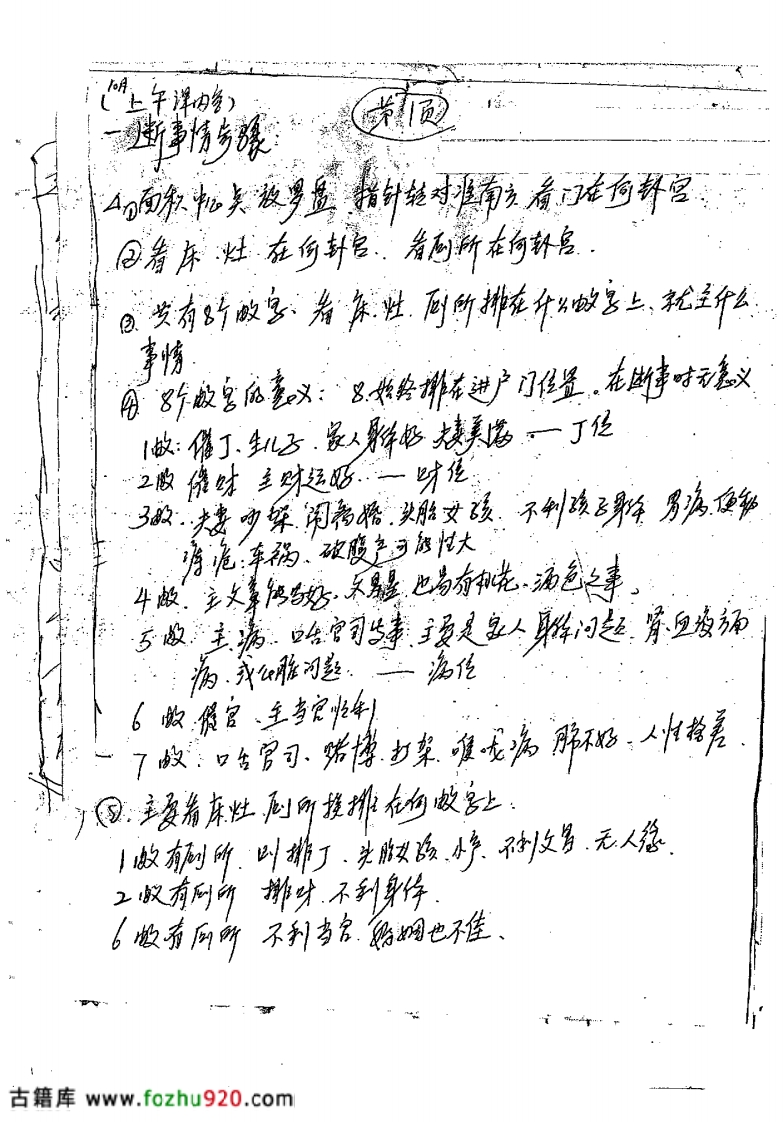 (10月上午课内容)
第1页
一、断事情步骤
①面积中心点放罗盘、指针转对准南方看门在何卦宫.
②看床、灶、在何卦宫、看厕所在何卦宫.
③共有8个数字、看床、灶、厕所排在什么数字上、就主什么
事情
④8个数字的意义：8始终排在进户门位置。在断事时无意义
1数：催丁、生儿子、家人身体好、夫妻美满 — 丁位
2数 催财 主财运好 — 财位
3数、夫妻吵架、闹离婚、头胎女孩、不利孩子身体 男病、
车祸、破腹产可能性大
4数、主文章 好、文昌星、也易有桃花、酒色之事。
5数、主病、口舌官司 事、主要是家人身体问题、肾、血液方面
病、或心脏问题 — 病位
6数、催官、主当官顺利
7数、口舌官司、赌博、打架、喉咙病 肺不好、人性格差.
⑤、主要看床、灶、厕所 排在何数字上.
1数有厕所、则 丁、头胎女孩、小产、不利文昌、无人缘.
2数有厕所 财、不利身体.
6数有厕所 不利当官、婚姻也不佳、
古籍库 www.fozhu920.com